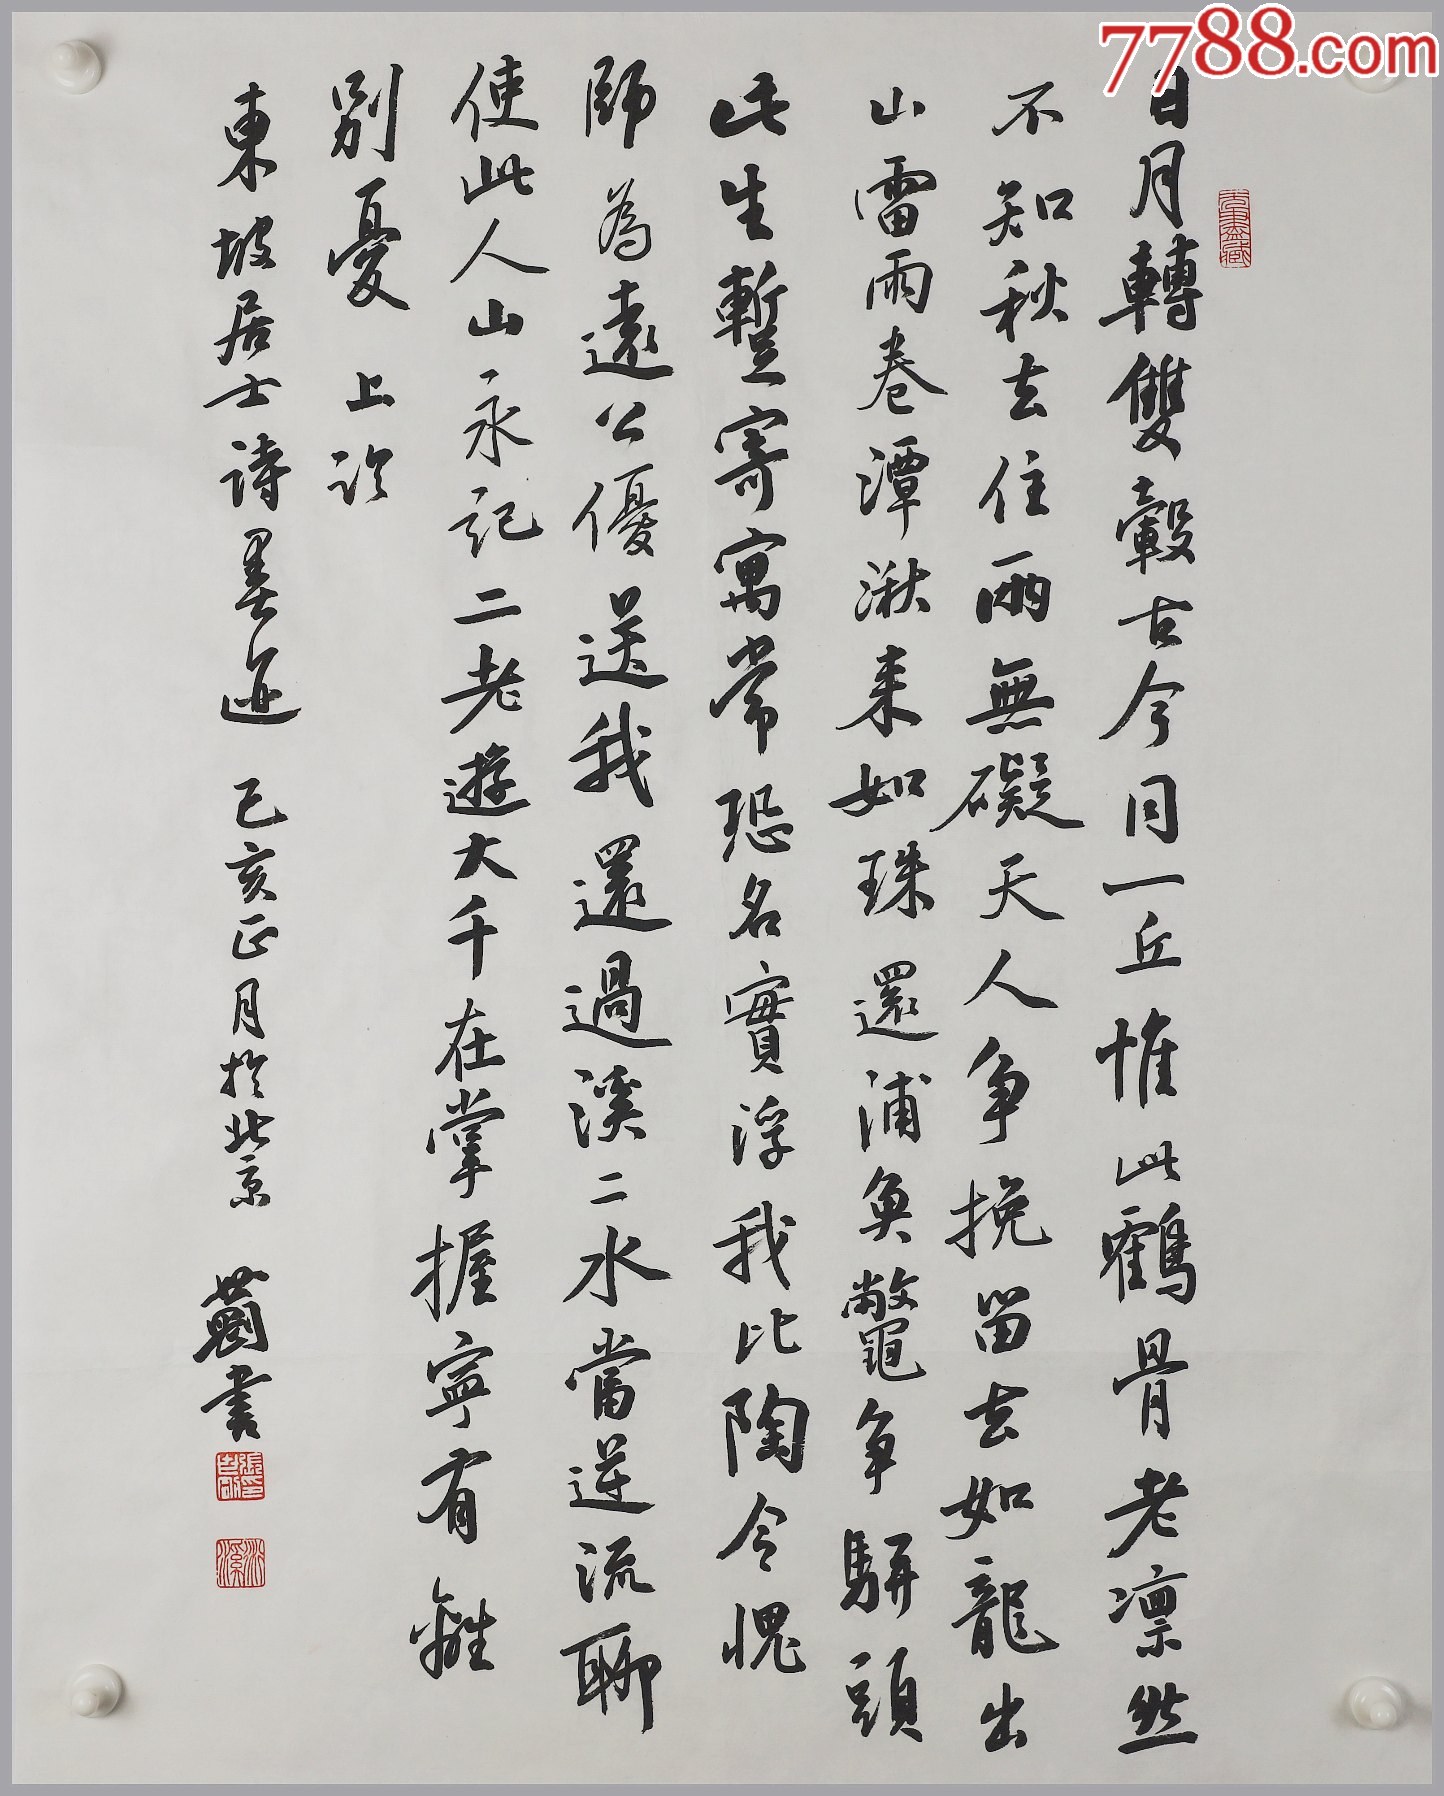 7788.com
日月轉雙轂古今同一丘惟此鶴骨老凛然
不知秋去住兩無礙天人争挽留去如龍出
山雷雨卷潭湫来如珠還浦魚鼈争駢頭
此生暫寄寓常恐名實浮我比陶令愧
師為遠公優送我還過溪二水當逆流聊
使此人山永記二老遊大千在掌握寧有離
别憂 上詅
東坡居士诗墨迹 己亥正月於北京 书